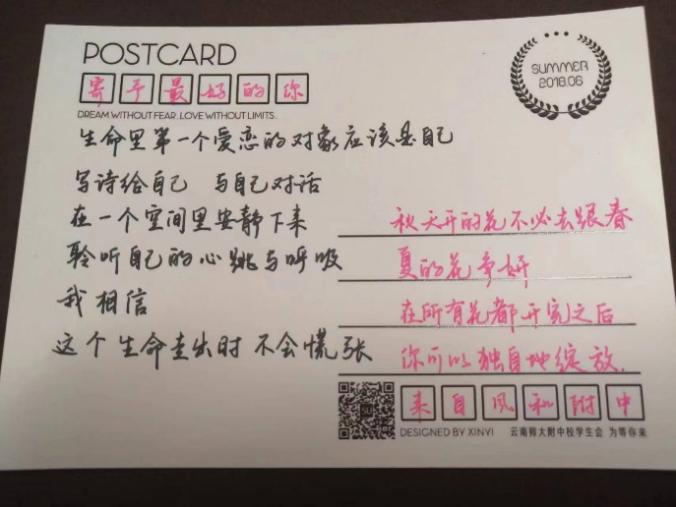 POSTCARD
寄予最好的你
DREAM WITHOUT FEAR. LOVE WITHOUT LIMITS.
SUMMER
2018.06
生命里第一个爱恋的对象应该是自己
写诗给自己 与自己对话
在一个空间里安静下来
聆听自己的心跳与呼吸
我相信
这个生命走出时不会慌张
秋天开的花不必去跟春
夏的花争妍
在所有花都开完之后
你可以独自地绽放.
来自风和附中
DESIGNED BY XINYI 云南师大附中校学生会 为等你来